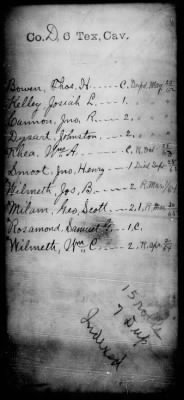 Co. D, 6 Tex, Cav.
Bowen, Thos. H — C. Reps. May
Kelley, Josiah L. — 1. " "
Cannon, Jno, R. — 2. " "
Dysart, Johnston, — 2. "
Rhea, Wm A. — C. R. Dec.
Smoot, Jno, Henry — 1 Died Sept.
Wilmeth, Jos, B. — 2. R. Mar
Milam, Geo, Scott. — 2. R. Mar
Rosamond, Samuel — 1. C.
Wilmeth, Wm C. — 2. R. Apr.
7 Dup.
Indexed